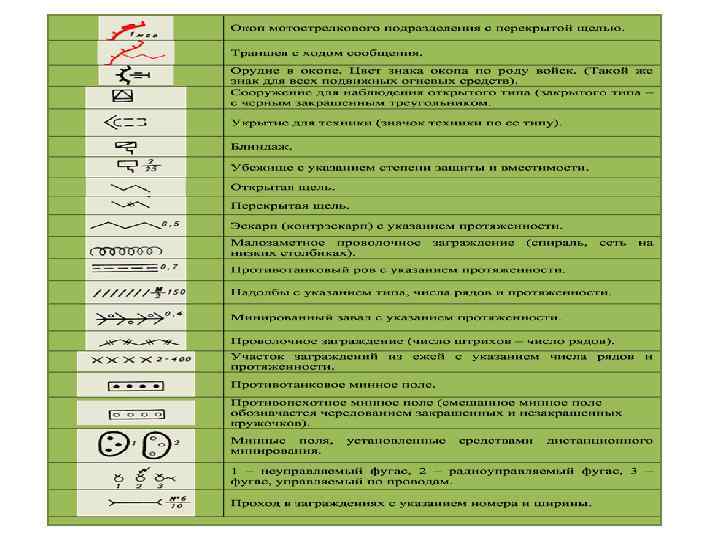 1 мсв
Окоп мотострелкового подразделения с перекрытой щелью.
Траншея с ходом сообщения.
Орудие в окопе. Цвет знака окопа по роду войск. (Такой же
знак для всех подвижных огневых средств).
Сооружение для наблюдения открытого типа (закрытого типа –
с черным закрашенным треугольником.
Укрытие для техники (значок техники по ее типу).
Блиндаж.
2
25
Убежище с указанием степени защиты и вместимости.
Открытая щель.
Перекрытая щель.
0,5
Эскарп (контрэскарп) с указанием протяженности.
Малозаметное проволочное заграждение (спираль, сеть на
низких столбиках).
0,7
Противотанковый ров с указанием протяженности.
М
3
-150
Надолбы с указанием типа, числа рядов и протяженности.
0,4
Минированный завал с указанием протяженности.
Проволочное заграждение (число штрихов – число рядов).
2-400
Участок заграждений из ежей с указанием числа рядов и
протяженности.
Противотанковое минное поле.
Противопехотное минное поле (смешанное минное поле
обозначается чередованием закрашенных и незакрашенных
кружочков).
1 2
Минные поля, установленные средствами дистанционного
минирования.
1 2 3
1 – неуправляемый фугас, 2 – радиоуправляемый фугас, 3 –
фугас, управляемый по проводам.
№6
10
Проход в заграждениях с указанием номера и ширины.